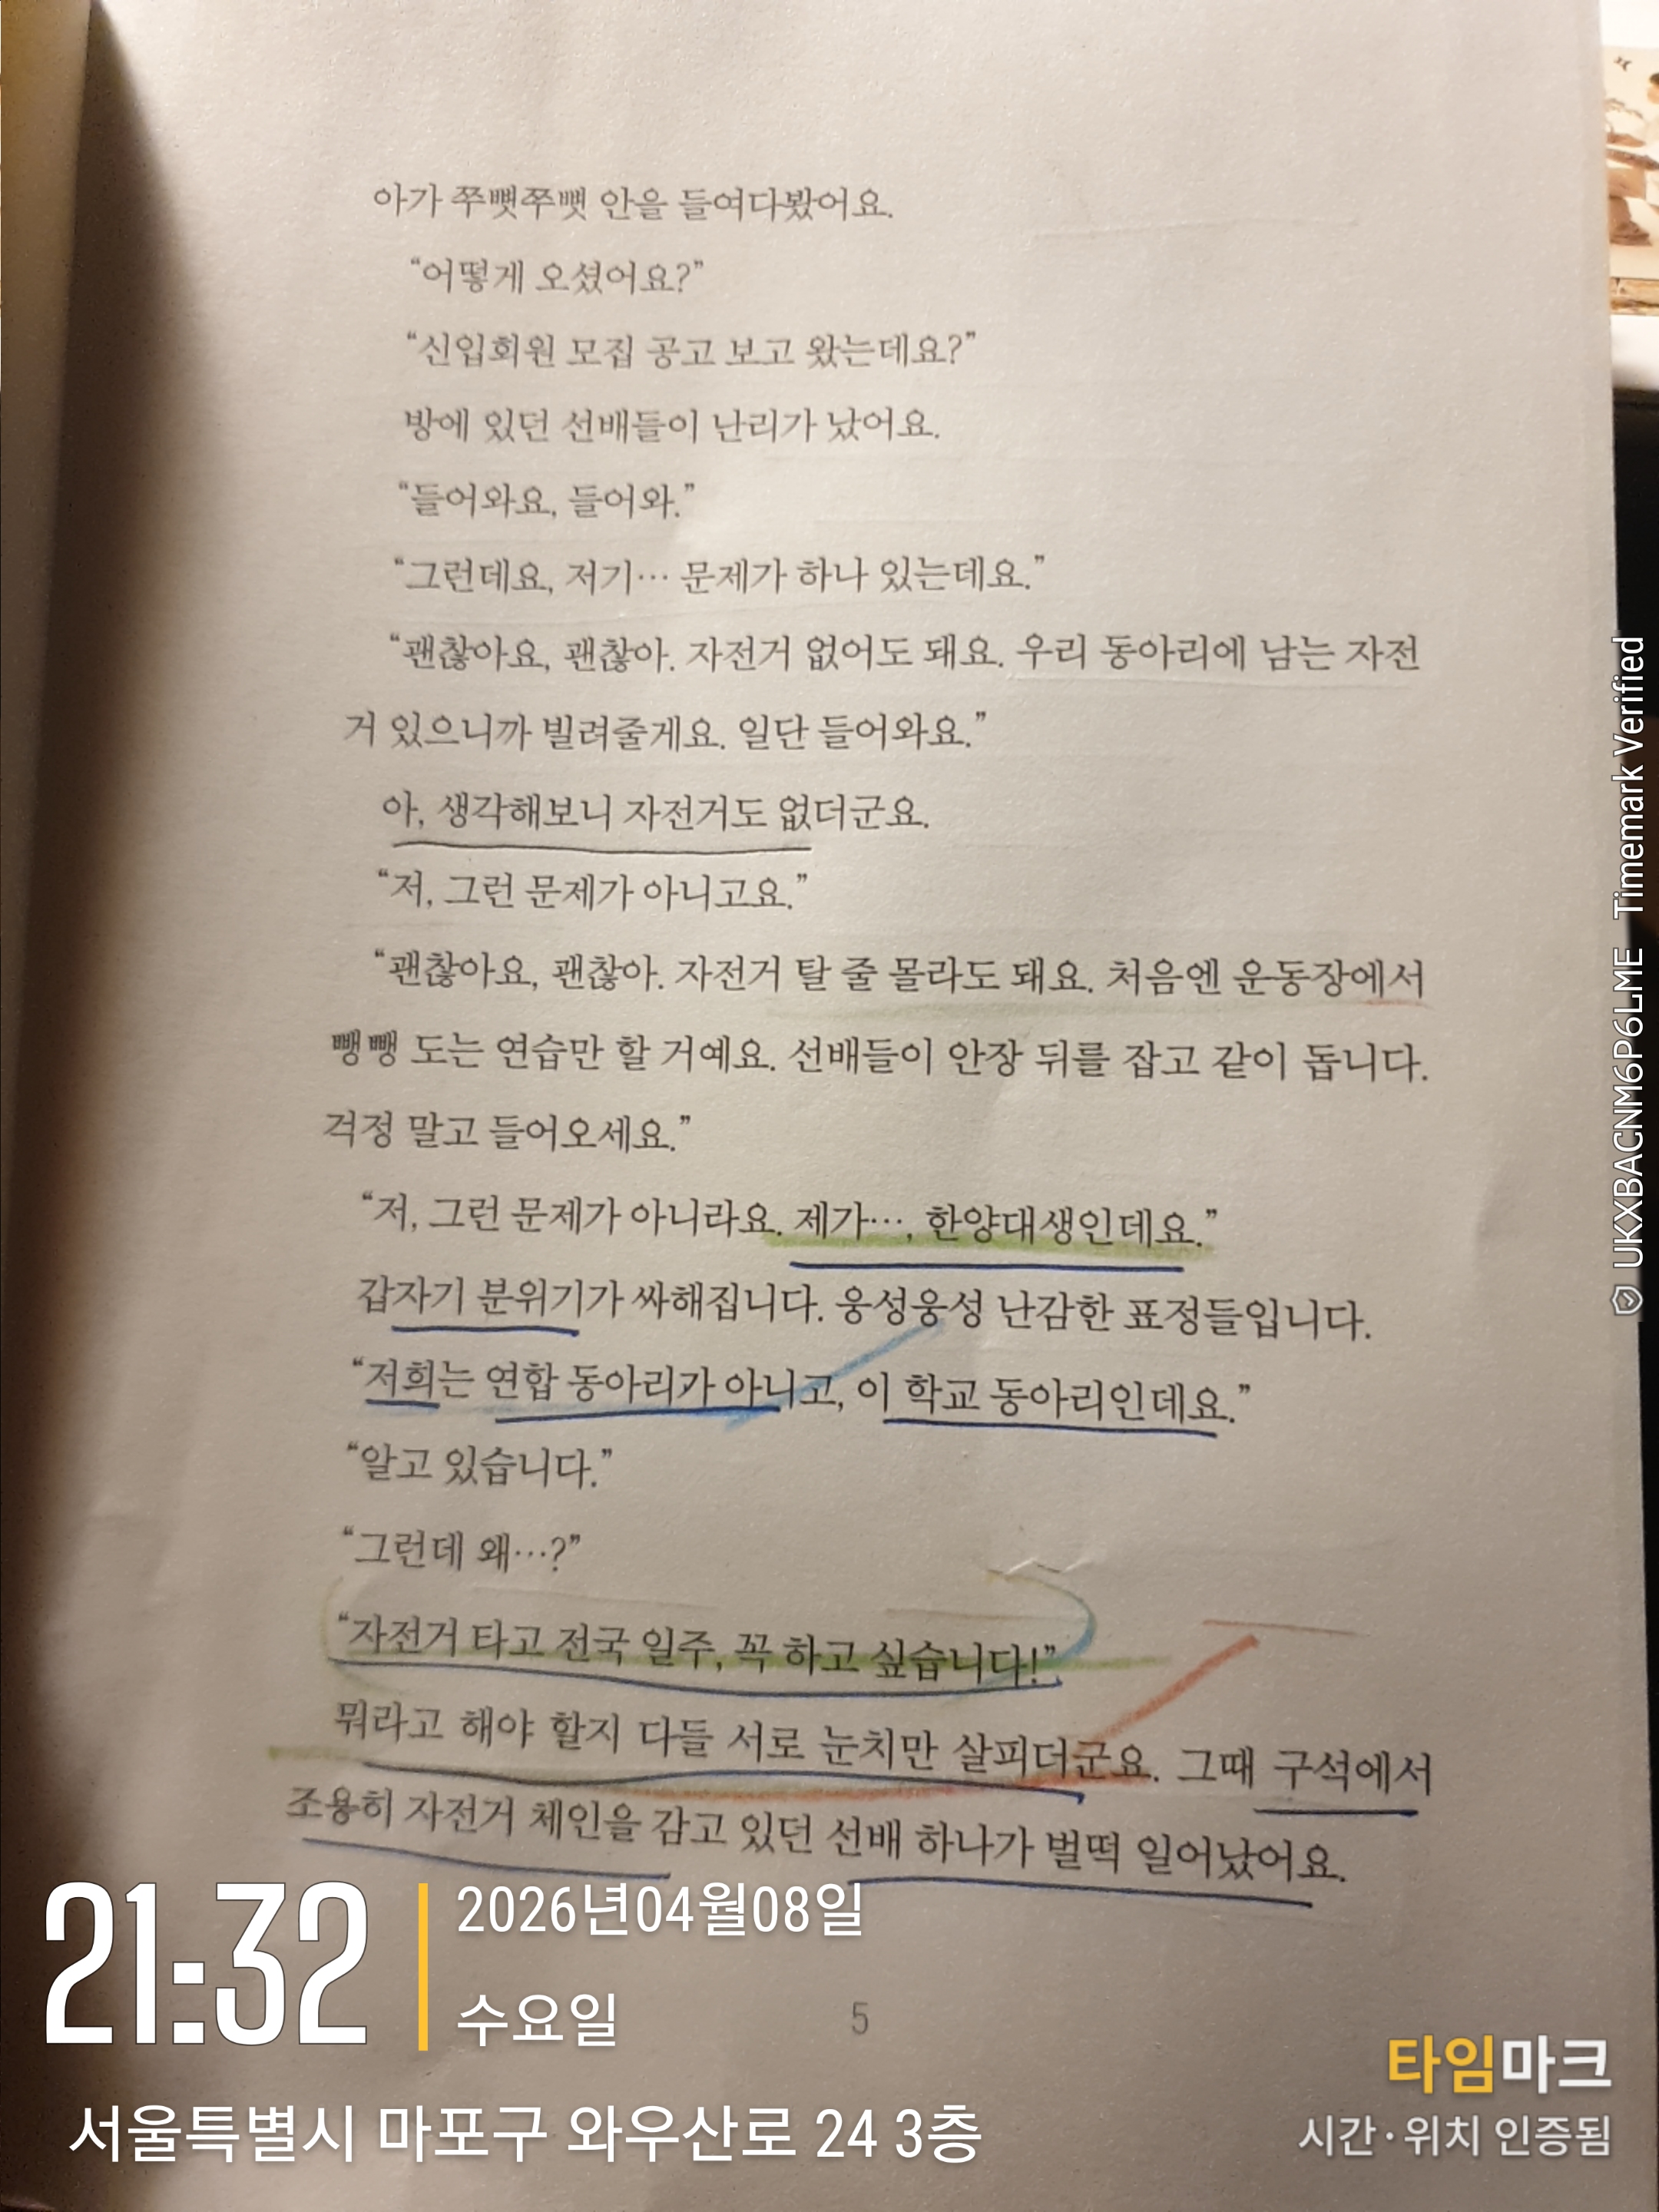 아가 쭈뼛쭈뼛 안을 들여다봤어요.
“어떻게 오셨어요?”
“신입회원 모집 공고 보고 왔는데요?”
방에 있던 선배들이 난리가 났어요.
“들어와요, 들어와.”
“그런데요, 저기… 문제가 하나 있는데요.”
“괜찮아요, 괜찮아. 자전거 없어도 돼요. 우리 동아리에 남는 자전
거 있으니까 빌려줄게요. 일단 들어와요.”
아, 생각해보니 자전거도 없더군요.
“저, 그런 문제가 아니고요.”
“괜찮아요, 괜찮아. 자전거 탈 줄 몰라도 돼요. 처음엔 운동장에서
뺑뺑 도는 연습만 할 거예요. 선배들이 안장 뒤를 잡고 같이 돕니다.
걱정 말고 들어오세요.”
“저, 그런 문제가 아니라요. 제가…, 한양대생인데요.”
갑자기 분위기가 싸해집니다. 웅성웅성 난감한 표정들입니다.
“저희는 연합 동아리가 아니고, 이 학교 동아리인데요.”
“알고 있습니다.”
“그런데 왜…?”
“자전거 타고 전국 일주, 꼭 하고 싶습니다!”
뭐라고 해야 할지 다들 서로 눈치만 살피더군요. 그때 구석에서
조용히 자전거 체인을 감고 있던 선배 하나가 벌떡 일어났어요.
5
21:32
2026년04월08일
수요일
서울특별시 마포구 와우산로 24 3층
타임마크
시간·위치 인증됨
UKXBACNM6P6LME Timemark Verified